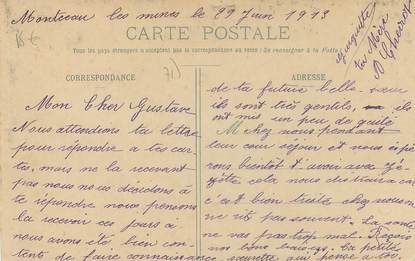 Montceau les mines le 29 Juin 1913
CARTE POSTALE
Tous les pays étrangers n'acceptent pas la correspondance au recto (Se renseigner à la Poste)
CORRESPONDANCE
ADRESSE
Mon Cher Gustave
Nous attendions ta lettre
pour répondre à tes car
tes, mais ne la recevant
pas nous nous décidons à
te répondre nous pensions
la recevoir ces jours ci
nous avons été bien con
tents de faire connaissance
de ta future belle-sœur
ils sont très gentils, ils
ont mis un peu de gaité
chez nous pendant
leur court séjour et nous espé
rons bientôt avoir
cela nous distraira car
c'est bien triste chez nous on
ne rit pas souvent. La santé
ne va pas trop mal. Reçois
nos bons baisers. Ta petite
sœurette qui pense à toi.
ta Mère